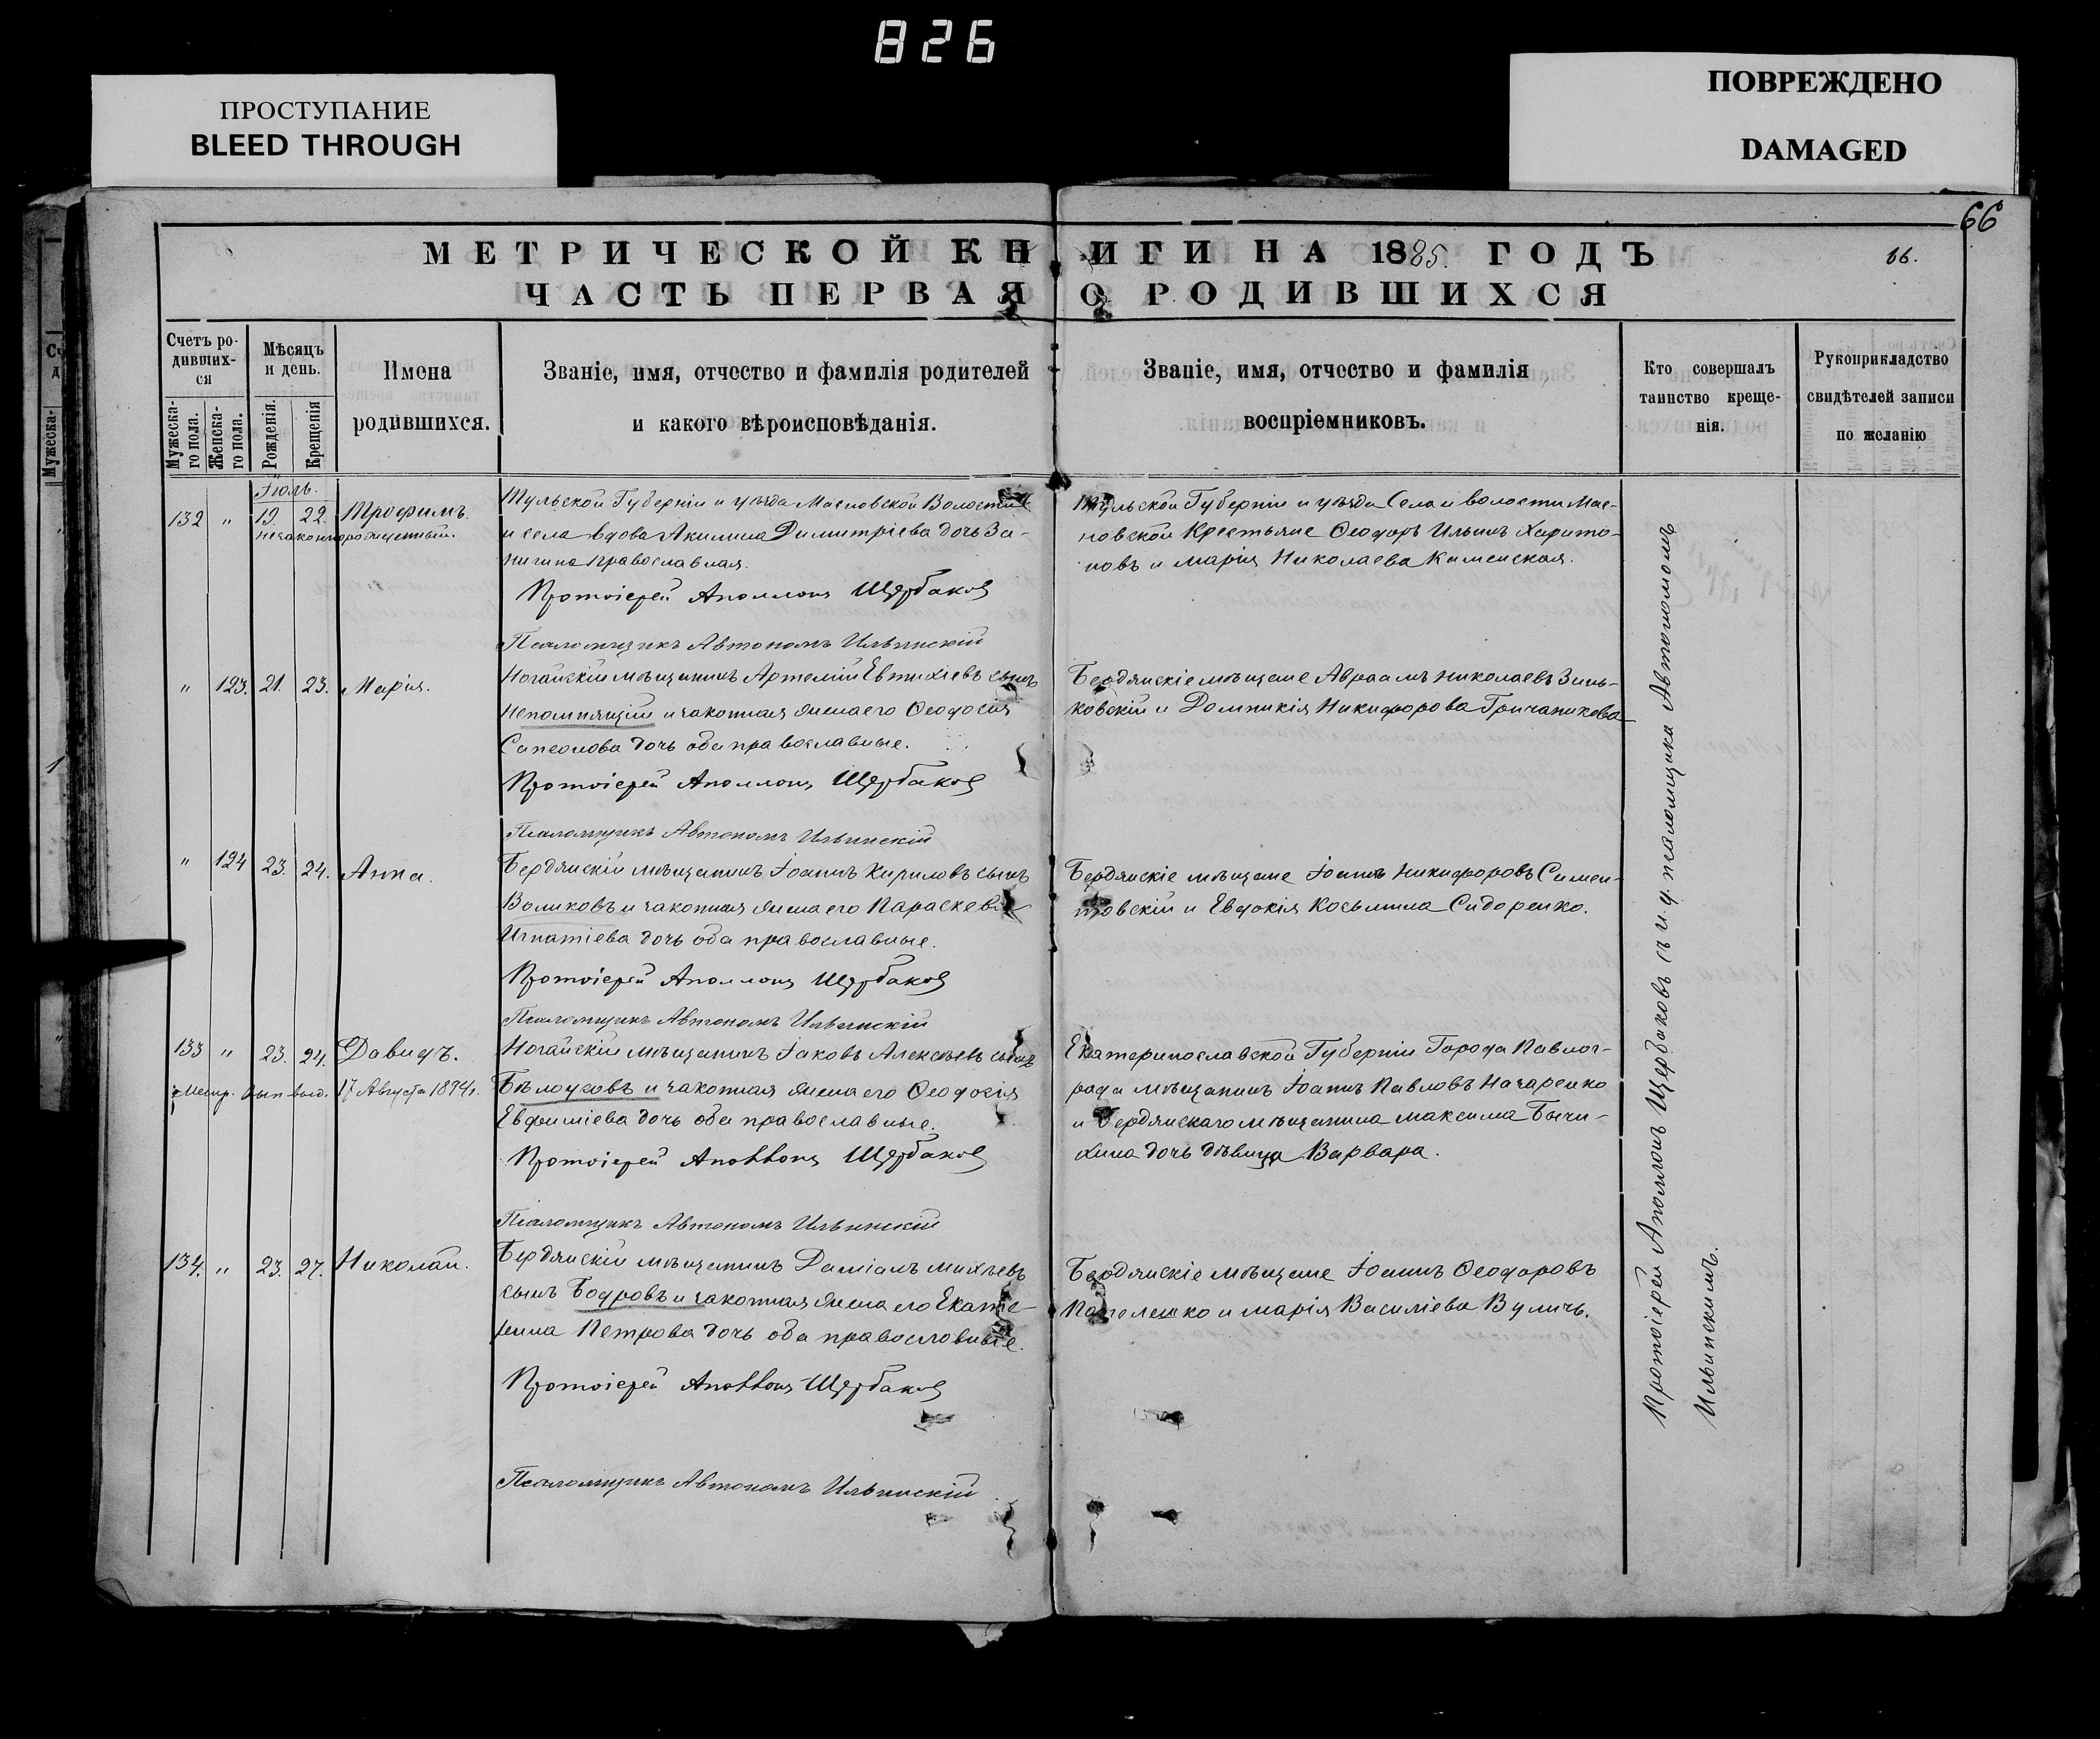 826
ПРОСТУПАНИЕ
BLEED THROUGH
ПОВРЕЖДЕНО
DAMAGED
66
МЕТРИЧЕСКОЙ КНИГИ НА 1885. ГОДЪ
66.
ЧАСТЬ ПЕРВАЯ О РОДИВШИХСЯ
Счетъ родивших-ся
Мужеска-го пола.
Женска-го пола.
Мѣсяцъ и день.
Рожденія.
Крещенія
Имена
родившихся.
Званіе, имя, отчество и фамилія родителей
и какого вѣроисповѣданія.
Званіе, имя, отчество и фамилія
воспріемниковъ.
Кто совершалъ
таинство креще-
нія.
Рукоприкладство
свидѣтелей записи
по желанію
Іюль.
132 " 19. 22. Трофимъ.
незаконнорожденный.
Тульской Губерніи и уѣзда Масловской Волости
и села вдова Акилина Димитріева дочь За-
нигина православная.
Протоіерей Аполлонъ Щербаковъ
Псаломщикъ Автономъ Ильинскій
Тульской Губерніи и уѣзда Села и волости Мас-
ловской Крестьяне Ѳеодоръ Ильинъ Харито-
новъ и Марія Николаева Каменская.
" 123. 21. 23. Марія.
Ногайскій мѣщанинъ Артемій Евтихіевъ сынъ
Непомнящій и законная жена его Ѳеодосія
дочь оба православные.
Протоіерей Аполлонъ Щербаковъ
Псаломщикъ Автономъ Ильинскій
Бердянскіе мѣщане Авраамъ Николаевъ Зинь-
ковскій и Домникія Никифорова Гричаникова
" 124 23. 24. Анна.
Бердянскій мѣщанинъ Іоаннъ Кириловъ сынъ
Воликовъ и законная жена его Параскева
Игнатіева дочь оба православные.
Протоіерей Аполлонъ Щербаковъ
Псаломщикъ Автономъ Ильинскій
Бердянскіе мѣщане Іоаннъ Никифоровъ Симен-
товскій и Евдокія Косьмина Сидоренко.
133 " 23. 24. Давидъ.
Метр. вып. выд. 17 Августа 1894 г.
Ногайскій мѣщанинъ Іаковъ Алексѣевъ сынъ
Бѣлоусовъ и законная жена его Ѳеодосія
Евфиміева дочь оба православные.
Протоіерей Аполлонъ Щербаковъ
Псаломщикъ Автономъ Ильинскій
Екатеринославской Губерніи Города Павлог-
рада мѣщанинъ Іоаннъ Павловъ Назаренко
и Бердянскаго мѣщанина Максима Бычи-
хина дочь дѣвица Варвара.
134. " 23. 27. Николай.
Бердянскій мѣщанинъ Даміанъ Михѣевъ
сынъ Бодровъ и законная жена его Екате-
рина Петрова дочь оба православные.
Протоіерей Аполлонъ Щербаковъ
Псаломщикъ Автономъ Ильинскій
Бердянскіе мѣщане Іоаннъ Ѳеодоровъ
Пателешко и Марія Василіева Вуличъ.
Протоіерей Аполлонъ Щербаковъ съ и. д. псаломщика Автономомъ
Ильинскимъ.